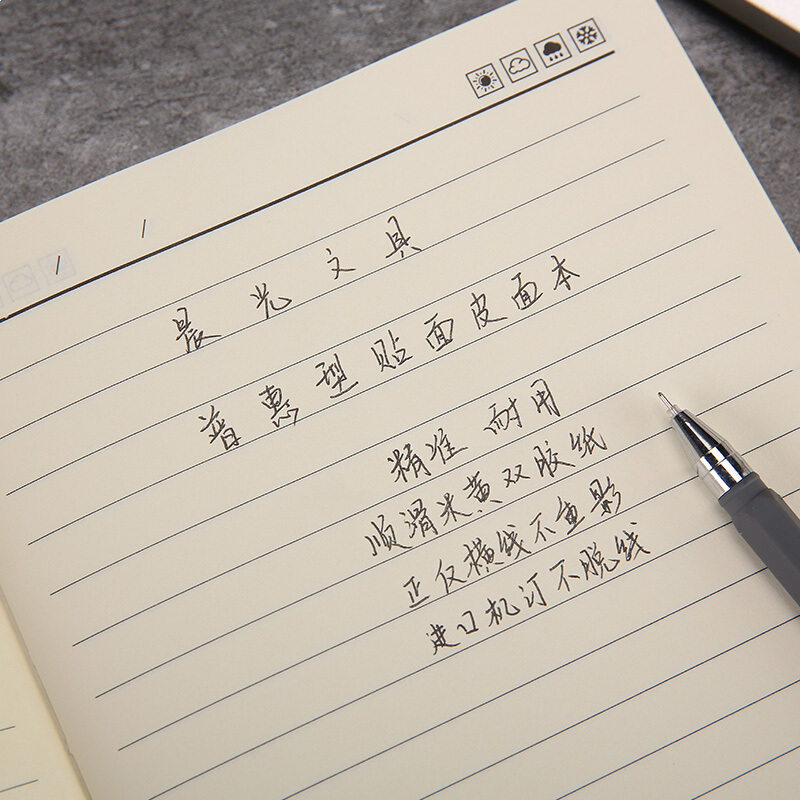 / /
晨光文具
普惠型贴面皮面本
精准 耐用
顺滑米黄双胶纸
正反横线不重影
进口机订不脱线